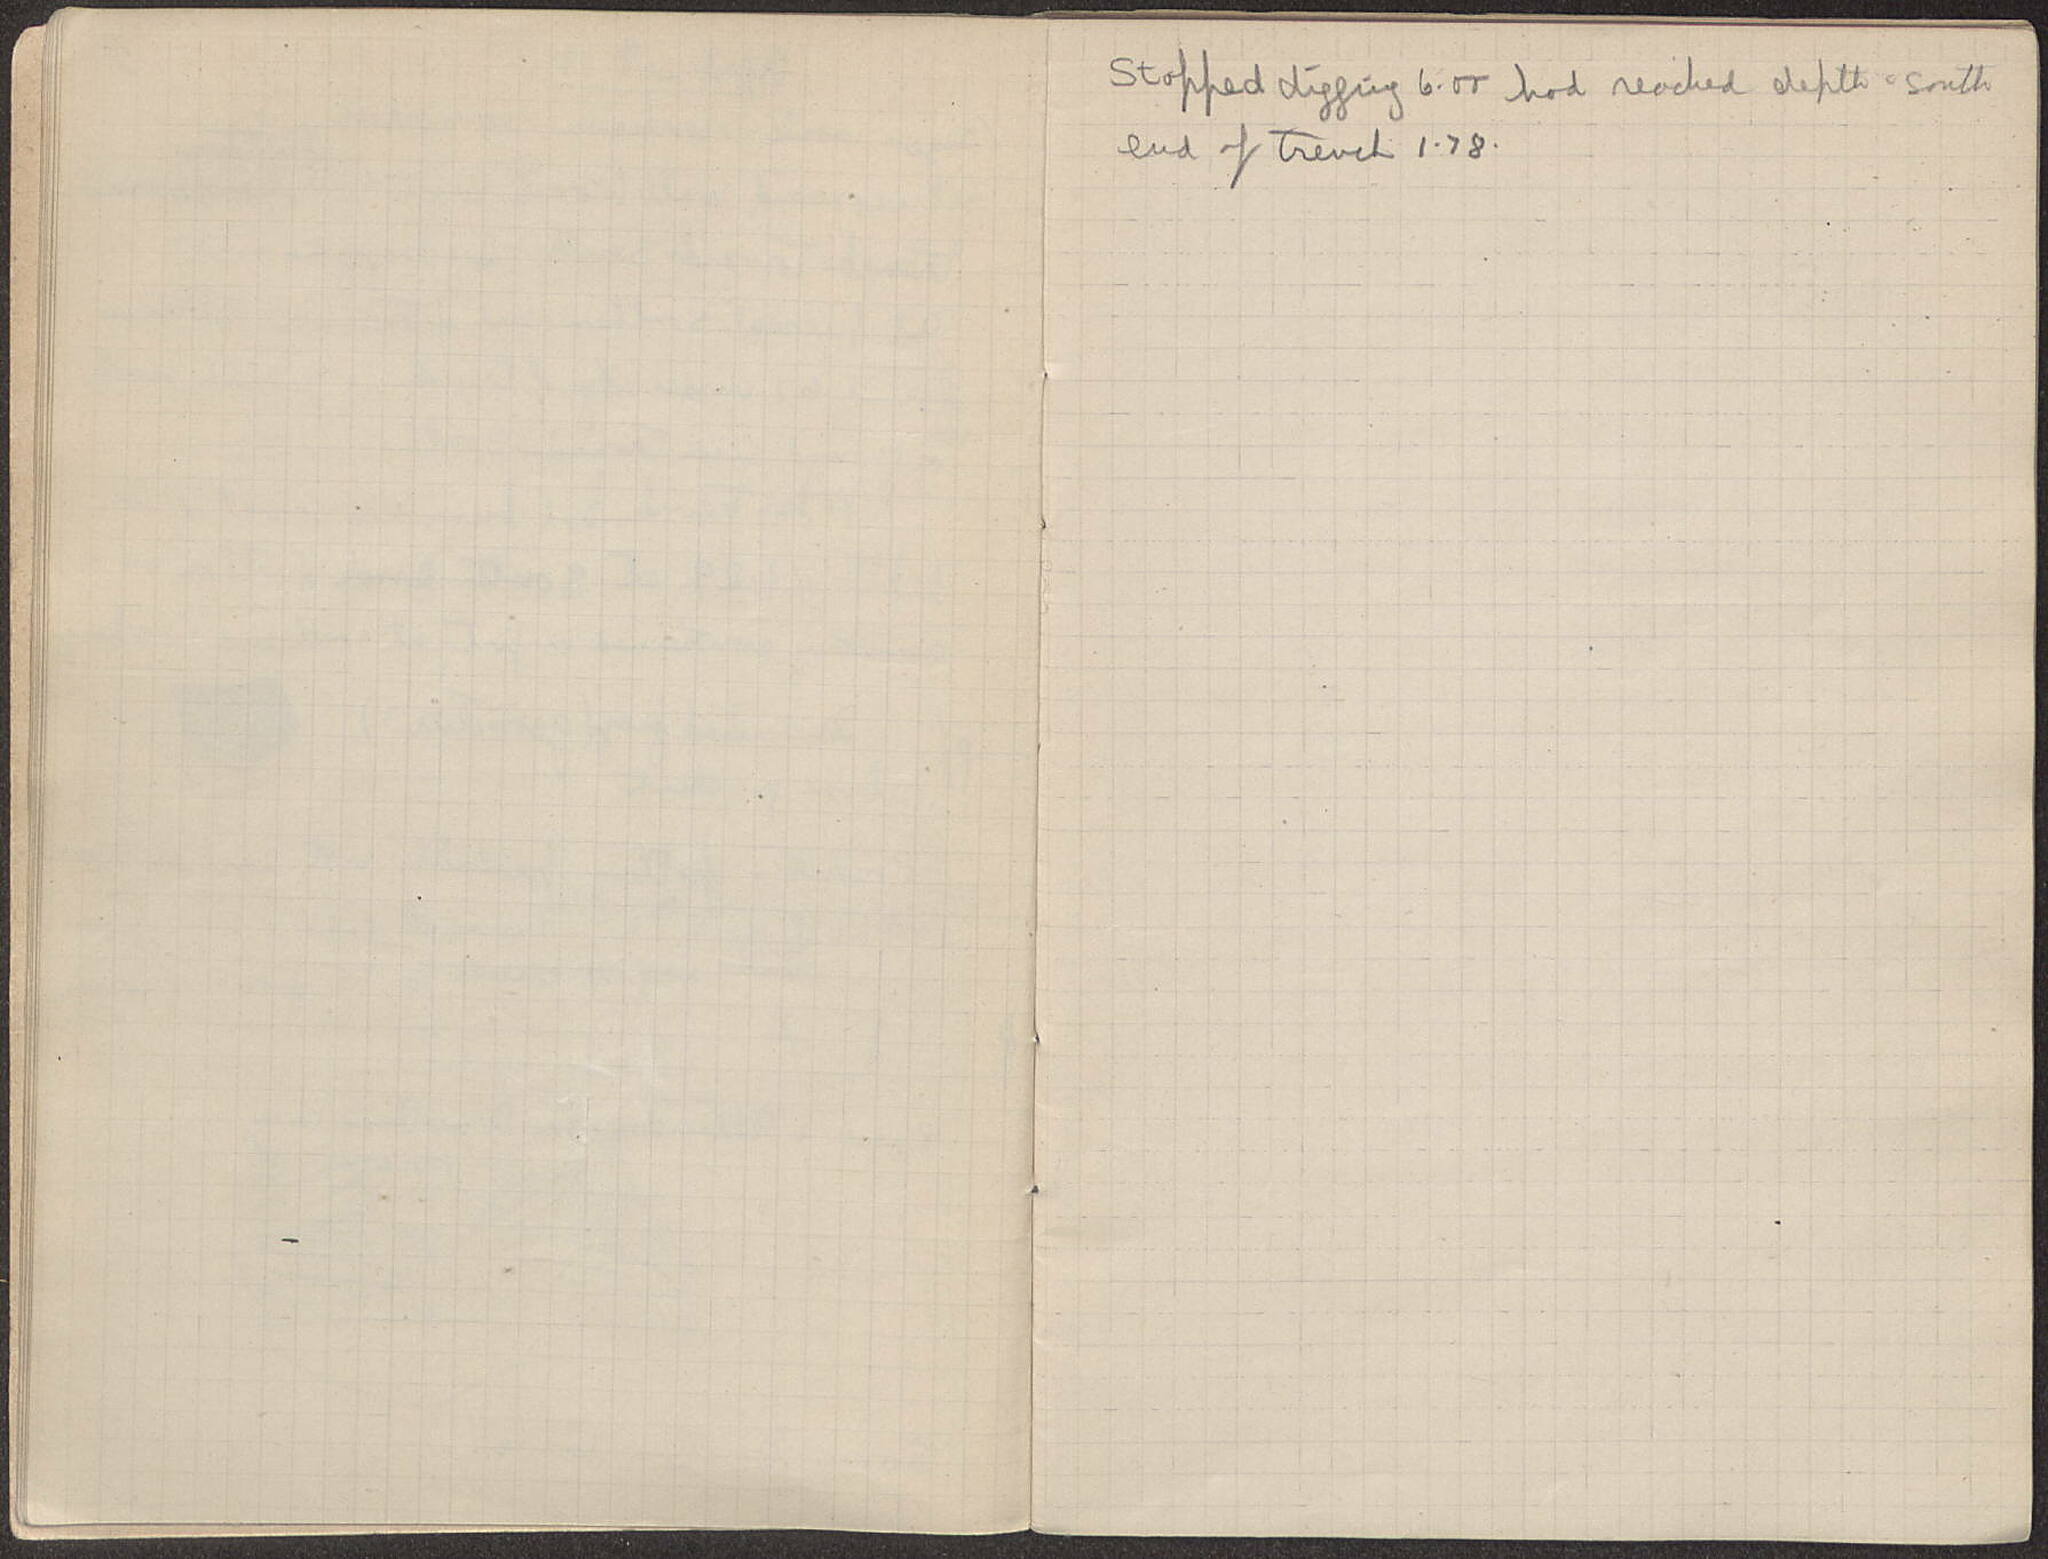 Stopped digging 6.00 had reached depth south
end of trench 1.78.